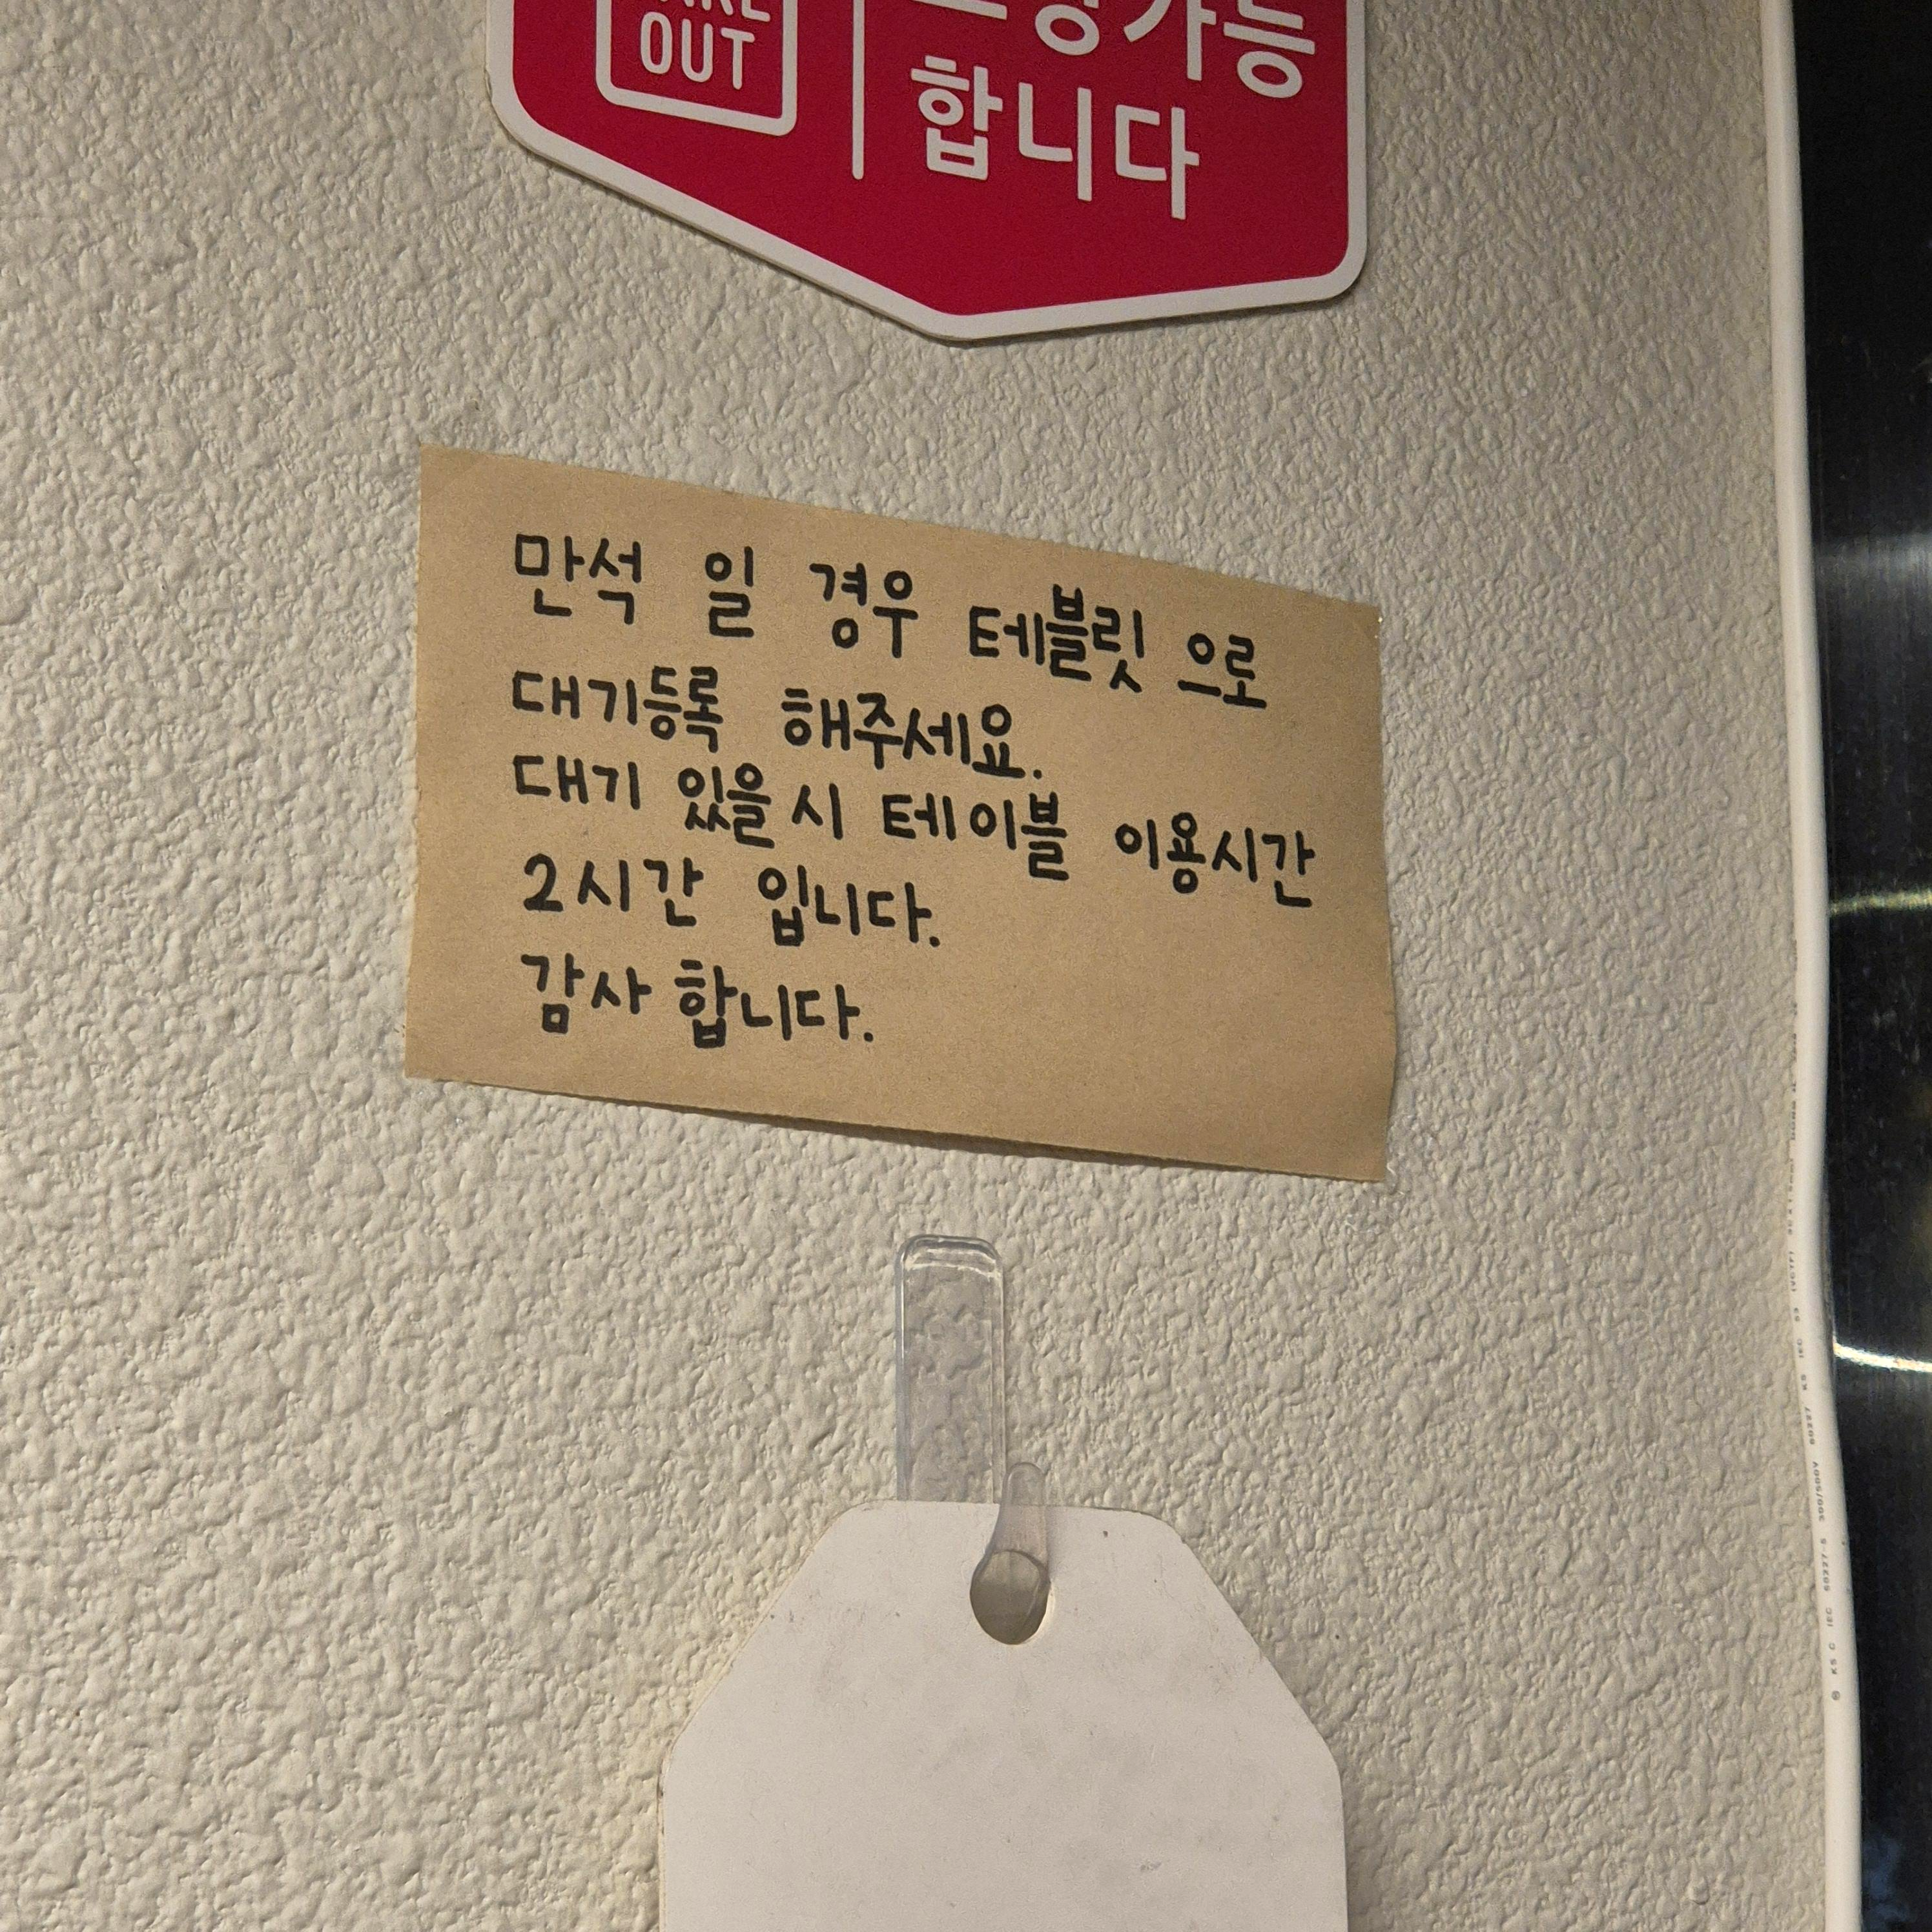 OUT
가능
합니다
만석 일 경우 테블릿 으로
대기등록 해주세요.
대기 있을 시 테이블 이용시간
2시간 입니다.
감사 합니다.